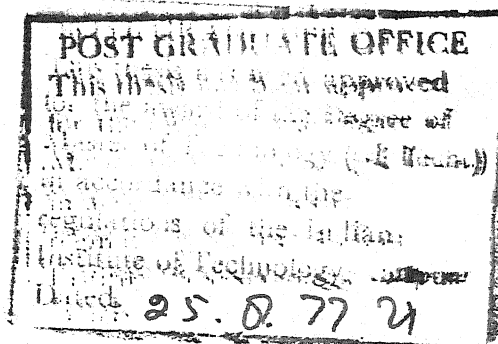 POST GRADUATE OFFICE
This thesis has been approved
for the award of the Degree of
Master of Technology (M.Tech.)
in accordance with the
regulations of the Indian
Institute of Technology
Dated. 25. 8. 77